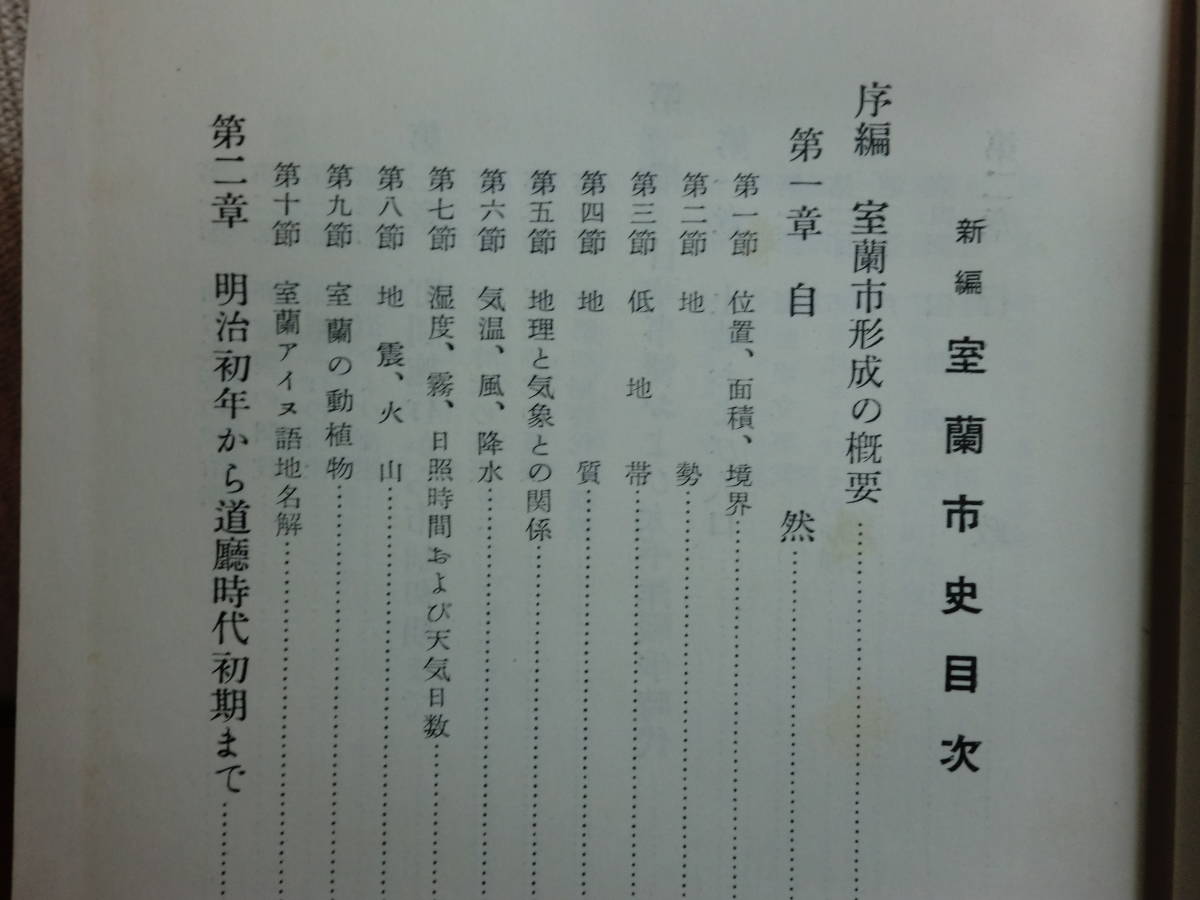 新編 室蘭市史目次
序編 室蘭市形成の概要……………………
第一章 自然……………………
第一節 位置、面積、境界……………………
第二節 地勢……………………
第三節 低地帯……………………
第四節 地質……………………
第五節 地理と気象との関係……………………
第六節 気温、風、降水……………………
第七節 湿度、霧、日照時間および天気日数……………………
第八節 地震、火山……………………
第九節 室蘭の動植物……………………
第十節 室蘭アイヌ語地名解……………………
第二章 明治初年から道廳時代初期まで…………